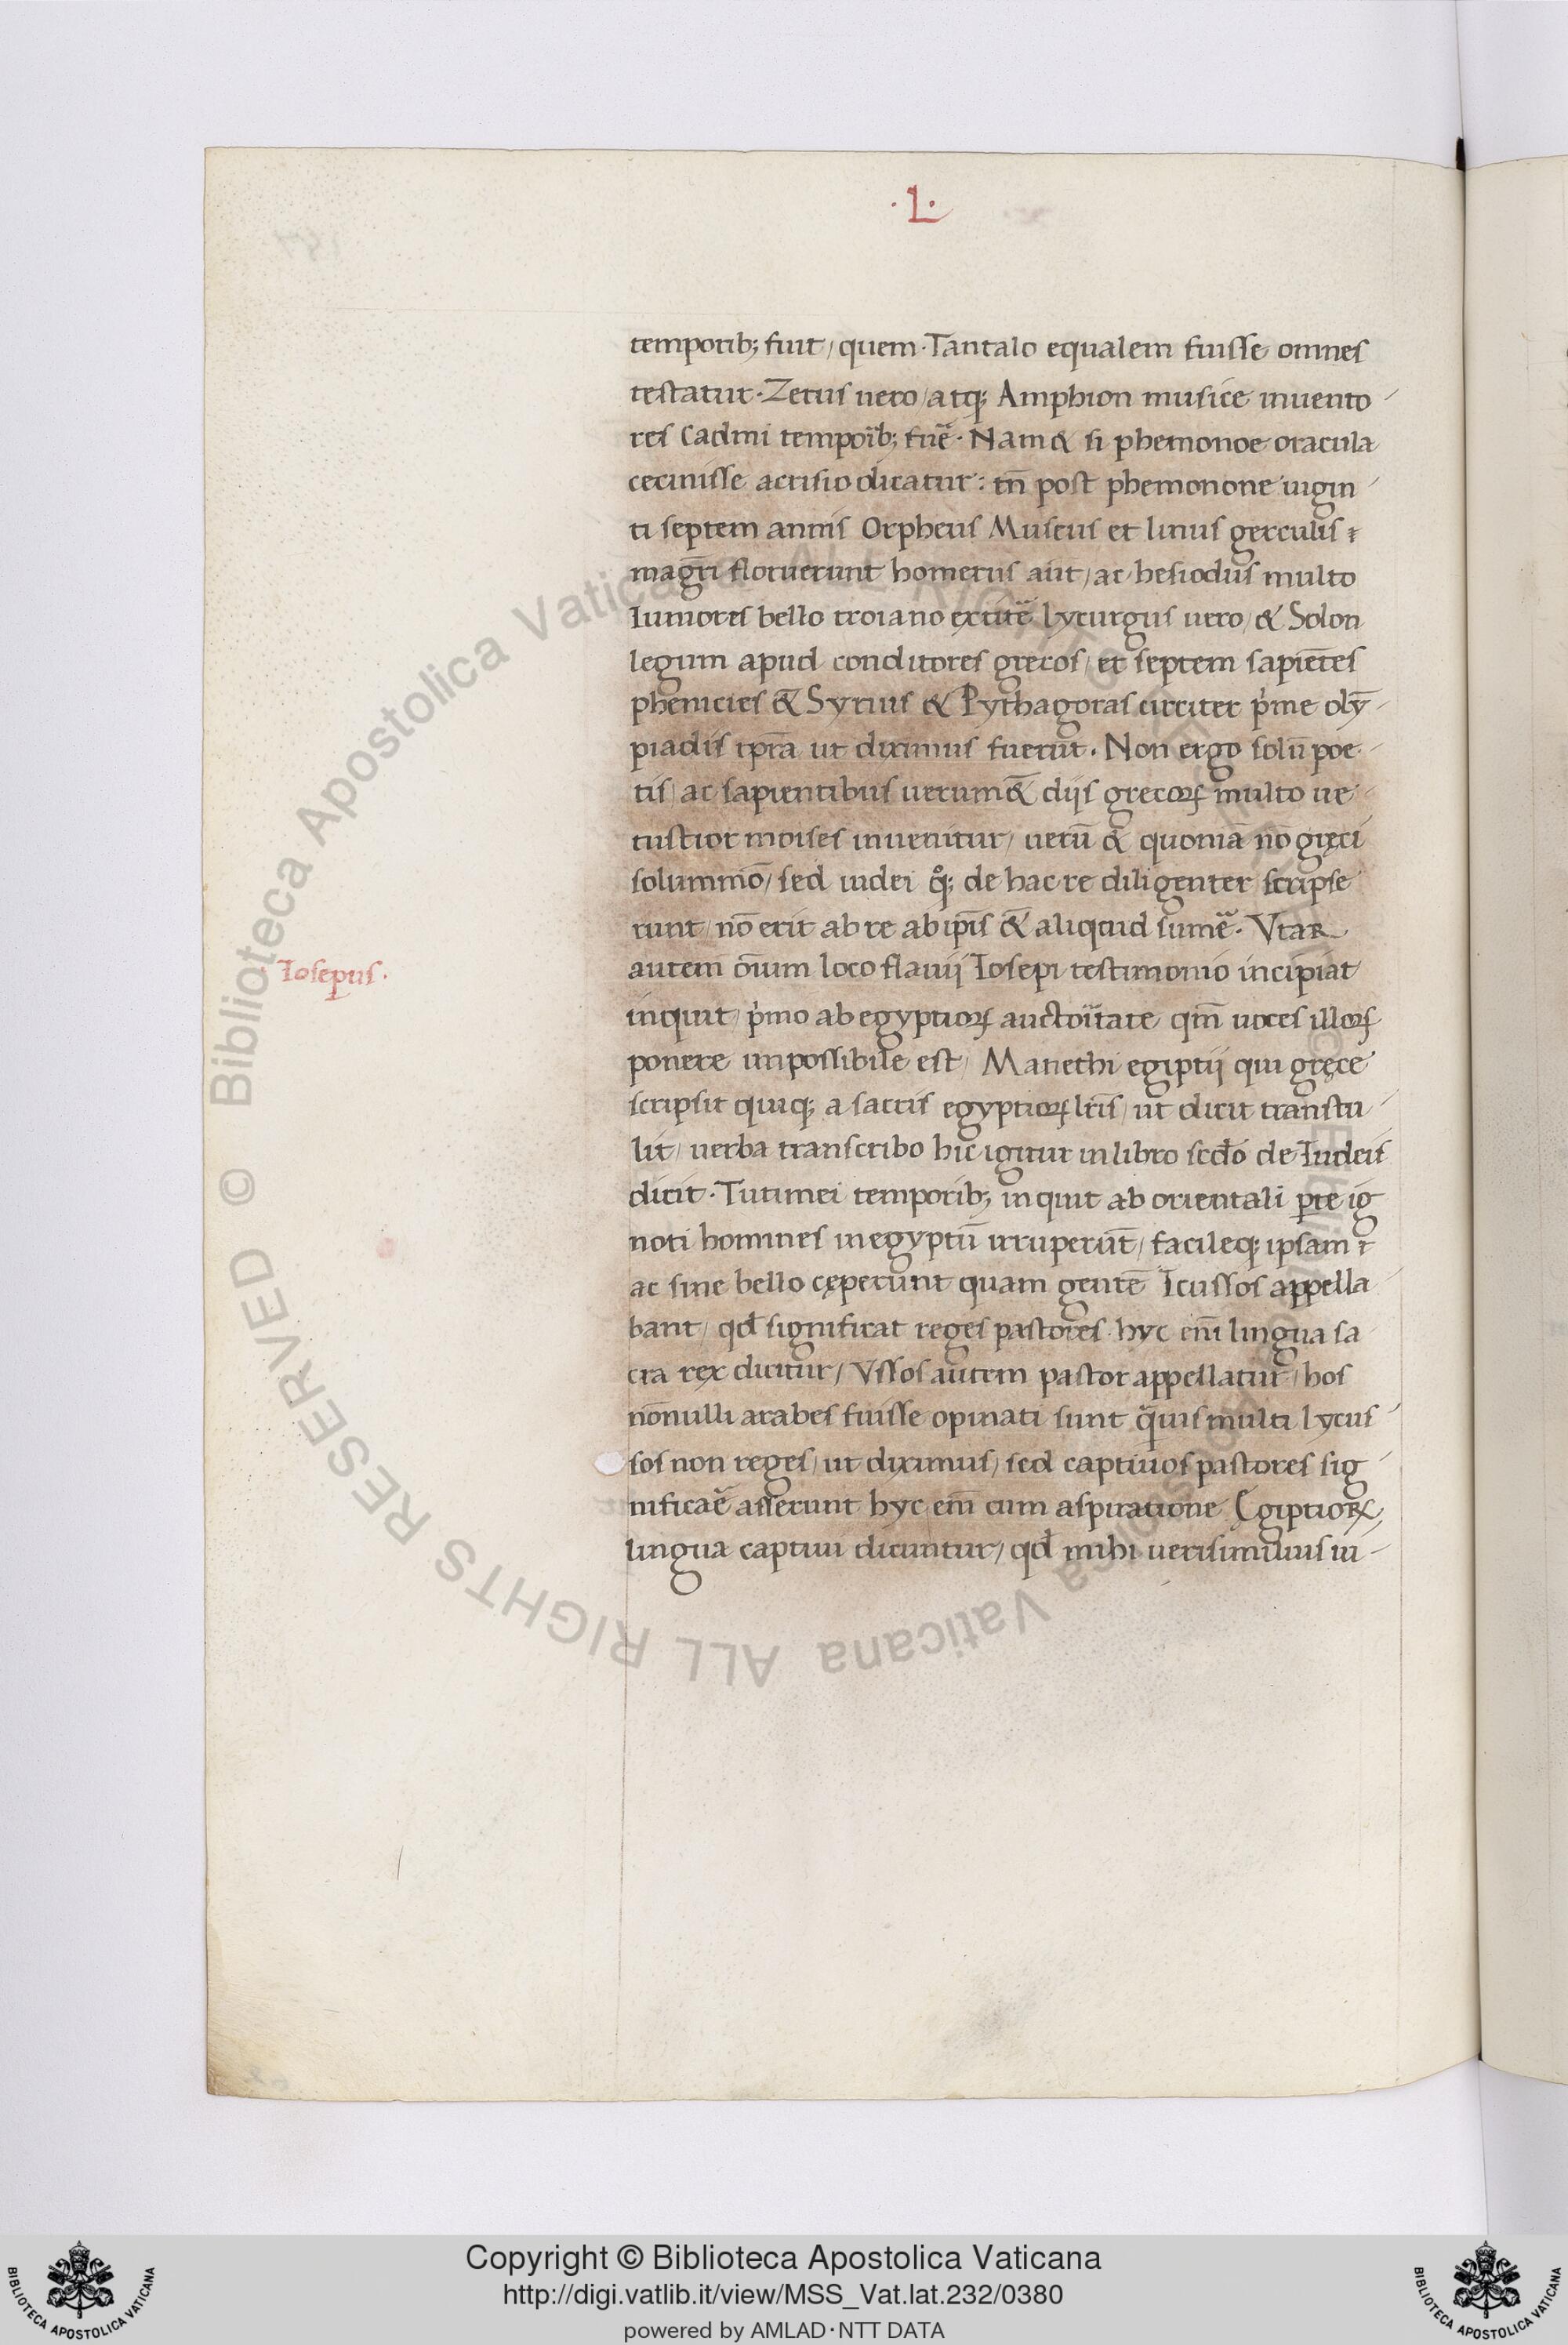 ·L·
temporib; fuit / quem · Tantalo equalem fuisse omnes
testatur · Zetus uero / atq; Amphion musice inuento
res Cadmi temporib; fuẽ · Nam & si phemonoe oracula
cecinisse acrisio dicatur : tñ post phemonone uigin
ti septem annis Orpheus Museus et linus gerculis
magr̃i floruerunt homerus aut / ac hesiodus multo
Iuniores bello troiano extitẽ lycurgus uero / & Solon
legum apud conditores grecos / et septem sapiẽtes
phenicies & Syrius & Pythagoras circiter p̓me olỹ
piadis tp̃ra ut diximus fuerũt . Non ergo solũ poe
tis / ac sapientibus uerum &̃ dijs grecoꝝ multo ue
tustior moises inuenitur / uerũ & quoniã nõ gręci
solummõ / sed iudei q̊; de hac re diligenter scripse
runt / nõ erit ab re ab ip̃is &̃ aliqcud sumẽ · Vtar
autem õium loco flauij Iosepi testimonio incipiat
· Iosepus ·
inquit / p̓mo ab egyptioꝝ auctoritate qm̃ uoces illoꝝ
ponere impossibile est / Manethi egiptij qui gręce
scripsit quiq; a sacris egyptioꝝ lr̃is / ut dicit transtu
lit / uerba transcribo hic igitur in libro scđo de Iudeis
dicit · Tutimei temporib; inquit ab orientali ꝑte ig
noti homines in egyptũ irruperũt / facileq; ipsam
ac sine bello cęperunt quam gentẽ Icussos appella
bant / qđ significat reges pastores · hyc em̃ lingua sa
cra rex dicitur / Vssos autem pastor appellatur / hos
nõnulli arabes fuisse opinati sunt q̃uis multi lycus
sos non reges / ut diximus / sed captiuos pastores sig
nificaẽ asserunt hyc em̃ cum aspiratione Egiptioꝝ
lingua captiui dicuntur / qđ mihi uerisimilius ui
Copyright © Biblioteca Apostolica Vaticana
http://digi.vatlib.it/view/MSS_Vat.lat.232/0380
powered by AMLAD·NTT DATA
© Biblioteca Apostolica Vaticana ALL RIGHTS RESERVED
BIBLIOTECA APOSTOLICA VATICANA
BIBLIOTECA APOSTOLICA VATICANA